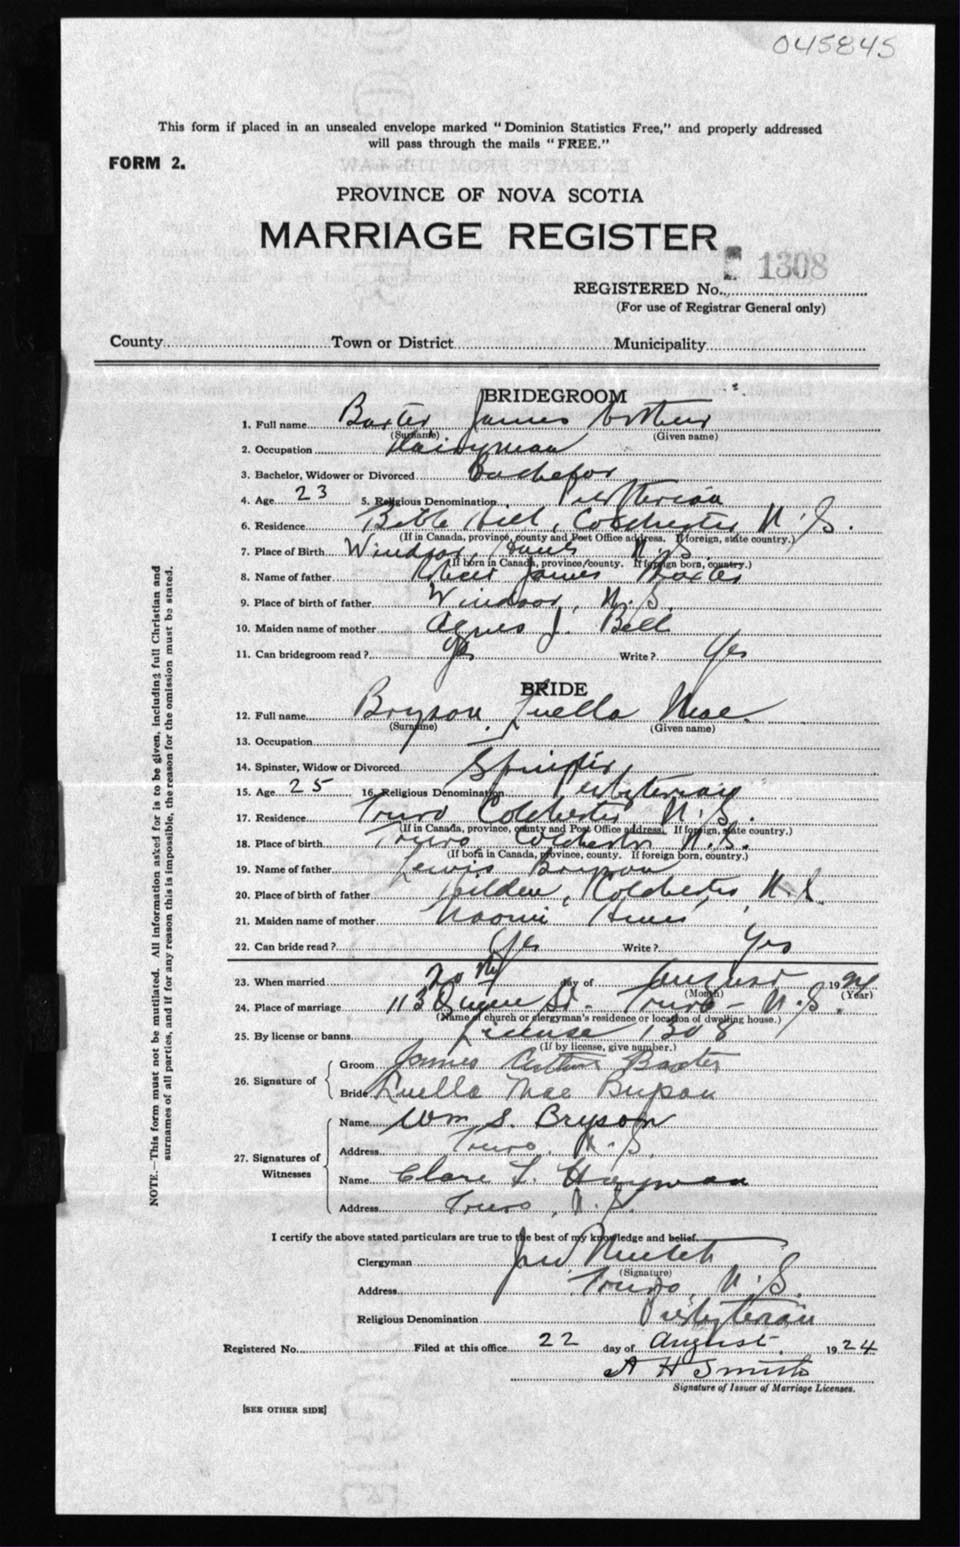 045845
This form if placed in an unsealed envelope marked "Dominion Statistics Free," and properly addressed
will pass through the mails "FREE."
FORM 2.
PROVINCE OF NOVA SCOTIA
MARRIAGE REGISTER
1308
REGISTERED No.
(For use of Registrar General only)
County Town or District Municipality
BRIDEGROOM
1. Full name Baxter James Arthur
(Surname) (Given name)
2. Occupation Dairyman
3. Bachelor, Widower or Divorced Bachelor
4. Age 23 5. Religious Denomination
6. Residence Bible Hill, Colchester N.S.
(If in Canada, province, county and Post Office address. If foreign, state country.)
7. Place of Birth Windsor, Hants N.S.
(If born in Canada, province/county. If foreign born, country.)
8. Name of father Robert James Baxter
9. Place of birth of father Windsor, N.S.
10. Maiden name of mother Agnes J. Bell
11. Can bridegroom read? Yes Write? Yes
BRIDE
12. Full name Bryson Luella Mae
(Surname) (Given name)
13. Occupation
14. Spinster, Widow or Divorced Spinster
15. Age 25 16. Religious Denomination Presbyterian
17. Residence Truro Colchester N.S.
(If in Canada, province, county and Post Office address. If foreign, state country.)
18. Place of birth Truro Colchester N.S.
(If born in Canada, province, county. If foreign born, country.)
19. Name of father Lewis Bryson
20. Place of birth of father Hilden, Colchester N.S.
21. Maiden name of mother Naomi
22. Can bride read? Yes Write? Yes
23. When married 20th day of August 1924
(Month) (Year)
24. Place of marriage 113 Queen St. Truro - N.S.
(Name of church or clergyman's residence or location of dwelling house.)
25. By license or banns License 1308
(If by license, give number.)
26. Signature of
Groom James Arthur Baxter
Bride Luella Mae Bryson
27. Signatures of Witnesses
Name Wm S. Bryson
Address Truro, N.S.
Name L.
Address Truro, N.S.
I certify the above stated particulars are true to the best of my knowledge and belief.
Clergyman
(Signature)
Address Truro, N.S.
Religious Denomination Presbyterian
Registered No. Filed at this office 22 day of August 1924
A H Smith
Signature of Issuer of Marriage Licenses.
[SEE OTHER SIDE]
NOTE.—This form must not be mutilated. All information asked for is to be given, including full Christian and
surnames of all parties, and if for any reason this is impossible, the reason for the omission must be stated.